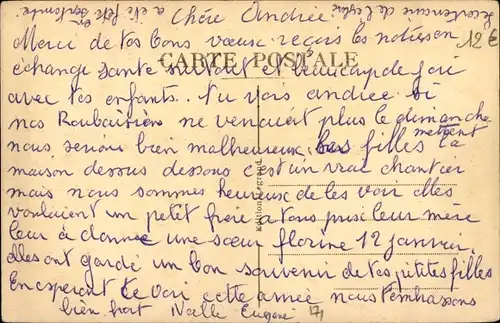 Chère Andrée
Merci de tes bons vœux reçois les nôtres en
CARTE POSTALE
échange santé surtout et beaucoup de joie
avec tes enfants.. tu vois andrée si
nos Roubaisiens ne venait plus le dimanche
nous serions bien malheureux. les filles mettent la
maison dessus dessous c'est un vrai chantier
mais nous sommes heureuse de les voir elles
voulaient un petit frère a tous prix leur mère
leur à donnée une sœur florine 12 janvier.
elles ont gardé un bon souvenir de tes petites filles
En esperant te voir cette année nous t'embrassons
bien fort Nelle Eugène
12 €
Edition Legrand
17